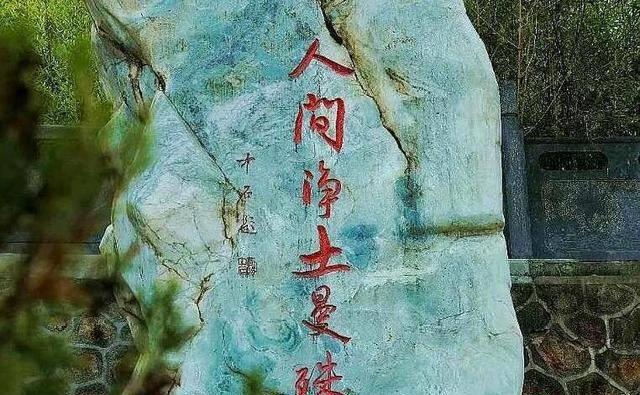 人间净土曼珠